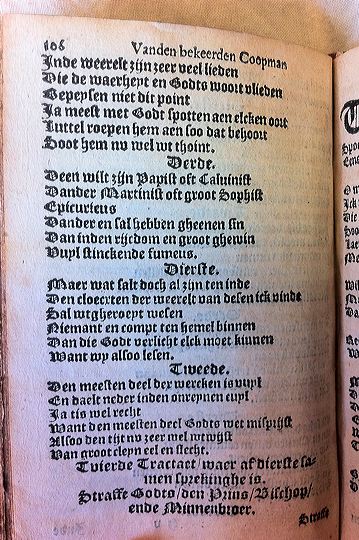 106 Vanden bekeerden Coopman
Inde weerelt zijn zeer veel lieden
Die de waerheyt en Godts woort vlieden
Gepeysen niet dit point
Ja meest met Godt spotten aen elcken oort
Luttel roepen hem aen soo dat behoort
Soot hem nv wel wt thoint.
Derde.
Deen wilt zijn Papist oft Caluinist
Dander Martinist oft groot Sophist
Epicurieus
Dander en sal hebben gheenen sin
Dan inden rijcdom en groot ghewin
Vuyl stinckende fumeus.
Dierste.
Maer wat salt doch al zijn ten inde
Den cloecxten der weerelt van desen ick vinde
Sal wtgheroept wesen
Niemant en compt ten hemel binnen
Dan die Godt verlicht elck moet kinnen
Want wy alsoo lesen.
Tweede.
Den meesten deel der wercken is vuyl
En daelt neder inden onreynen cuyl
Ja tis wel recht
Want den meesten deel Godts wet misprijst
Alsoo den tijt nv zeer wel wtwijst
Van groot cleyn eel en slecht.
Tvierde Tractaet/waer af dierste sa-
men sprekinghe is.
Straffe Godts/den Prins/Bischop/
ende Minnenbroer.
Straffe